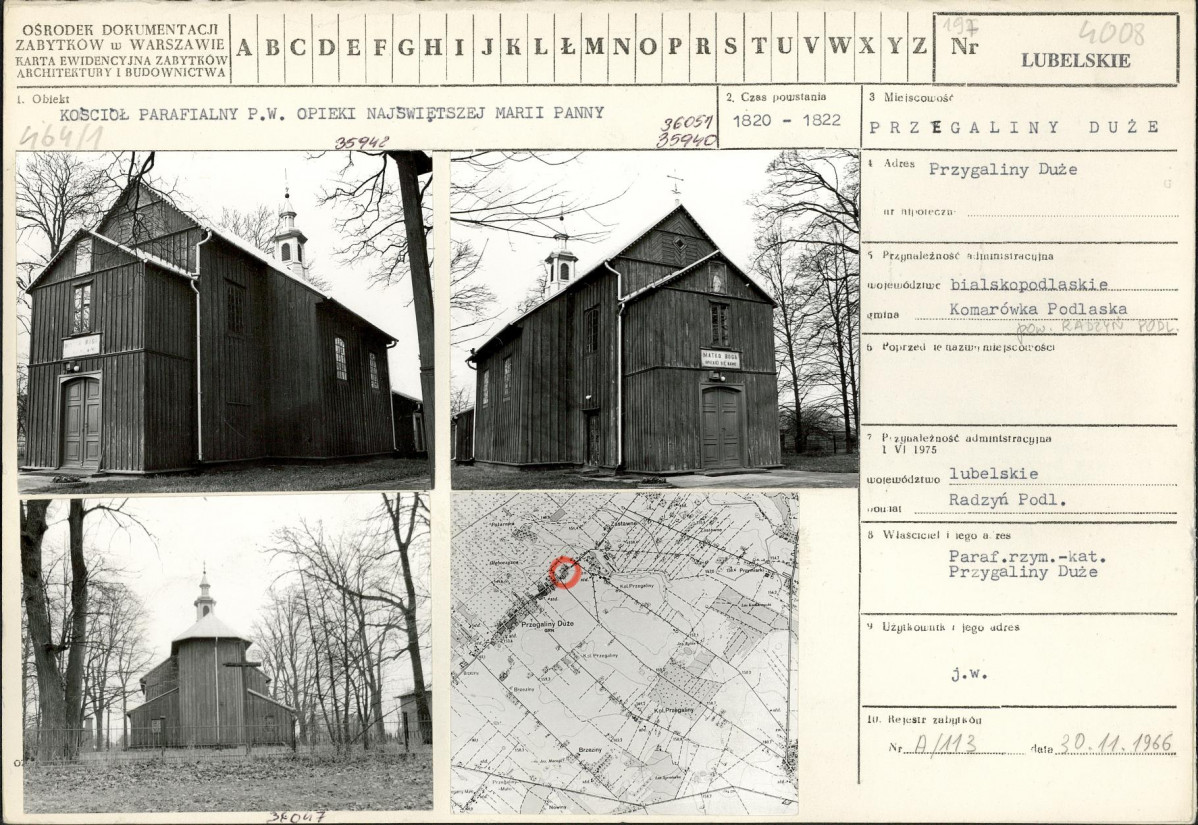 OŚRODEK DOKUMENTACJI
ZABYTKÓW w WARSZAWIE
KARTA EWIDENCYJNA ZABYTKÓW
ARCHITEKTURY I BUDOWNICTWA
A B C D E F G H I J K L Ł M N O P R S T U V W X Y Z
197
Nr
4008
LUBELSKIE
1. Obiekt
KOŚCIÓŁ PARAFIALNY P.W. OPIEKI NAJŚWIĘTSZEJ MARII PANNY
464/1
35942
36051
35940
2. Czas powstania
1820 - 1822
3 Miejscowość
PRZEGALINY DUŻE
4 Adres
Przygaliny Duże
nr hipoteczny
5 Przynależność administracyjna
województwo bialskopodlaskie
gmina Komarówka Podlaska
pow. RADZYŃ PODL.
6 Poprzednie nazwy miejscowości
7 Przynależność administracyjna
1 VI 1975
województwo lubelskie
powiat Radzyń Podl.
8 Właściciel i jego adres
Paraf.rzym.-kat.
Przygaliny Duże
9 Użytkownik i jego adres
j.w.
10. Rejestr zabytków
Nr A/113 data 30.11.1966
MATKO BOGA
Zastawne
Kol.Przegaliny
Przegaliny Duże
Kol.Przegaliny
Brzeziny
Kol.Przegaliny
Brzeziny